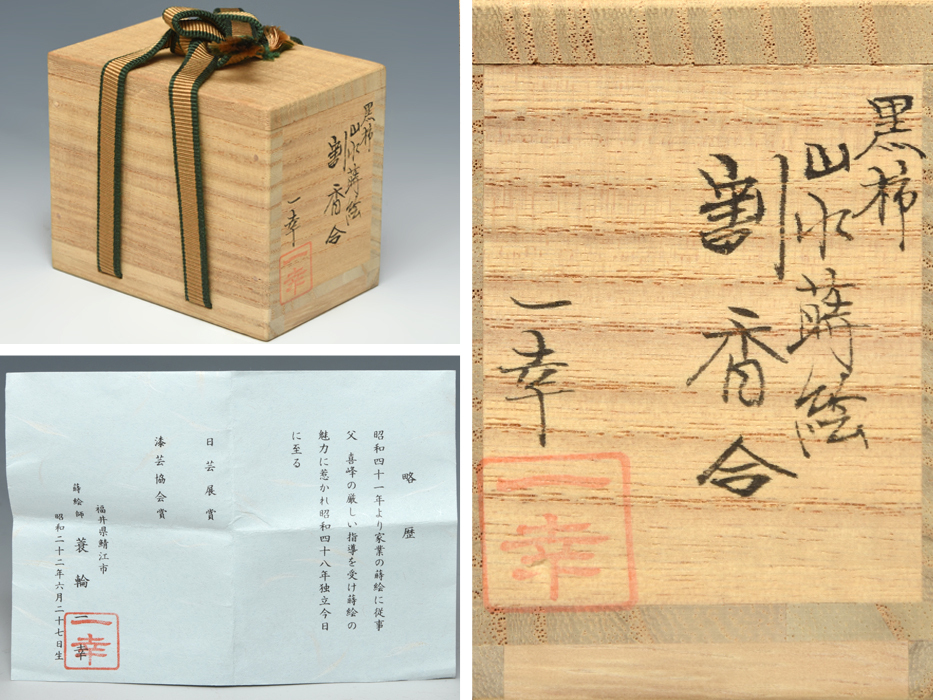 黒柿
山水蒔絵
割香合
一幸
一幸
略歴
昭和四十一年より家業の蒔絵に従事
父 喜峰の厳しい指導を受け蒔絵の
魅力に惹かれ昭和四十八年独立今日
に至る
日芸展賞
漆芸協会賞
福井県鯖江市
蒔絵師 蓑輪一幸
昭和二十二年六月二十七日生
一幸
黒柿
山水蒔絵
割香合
一幸
一幸